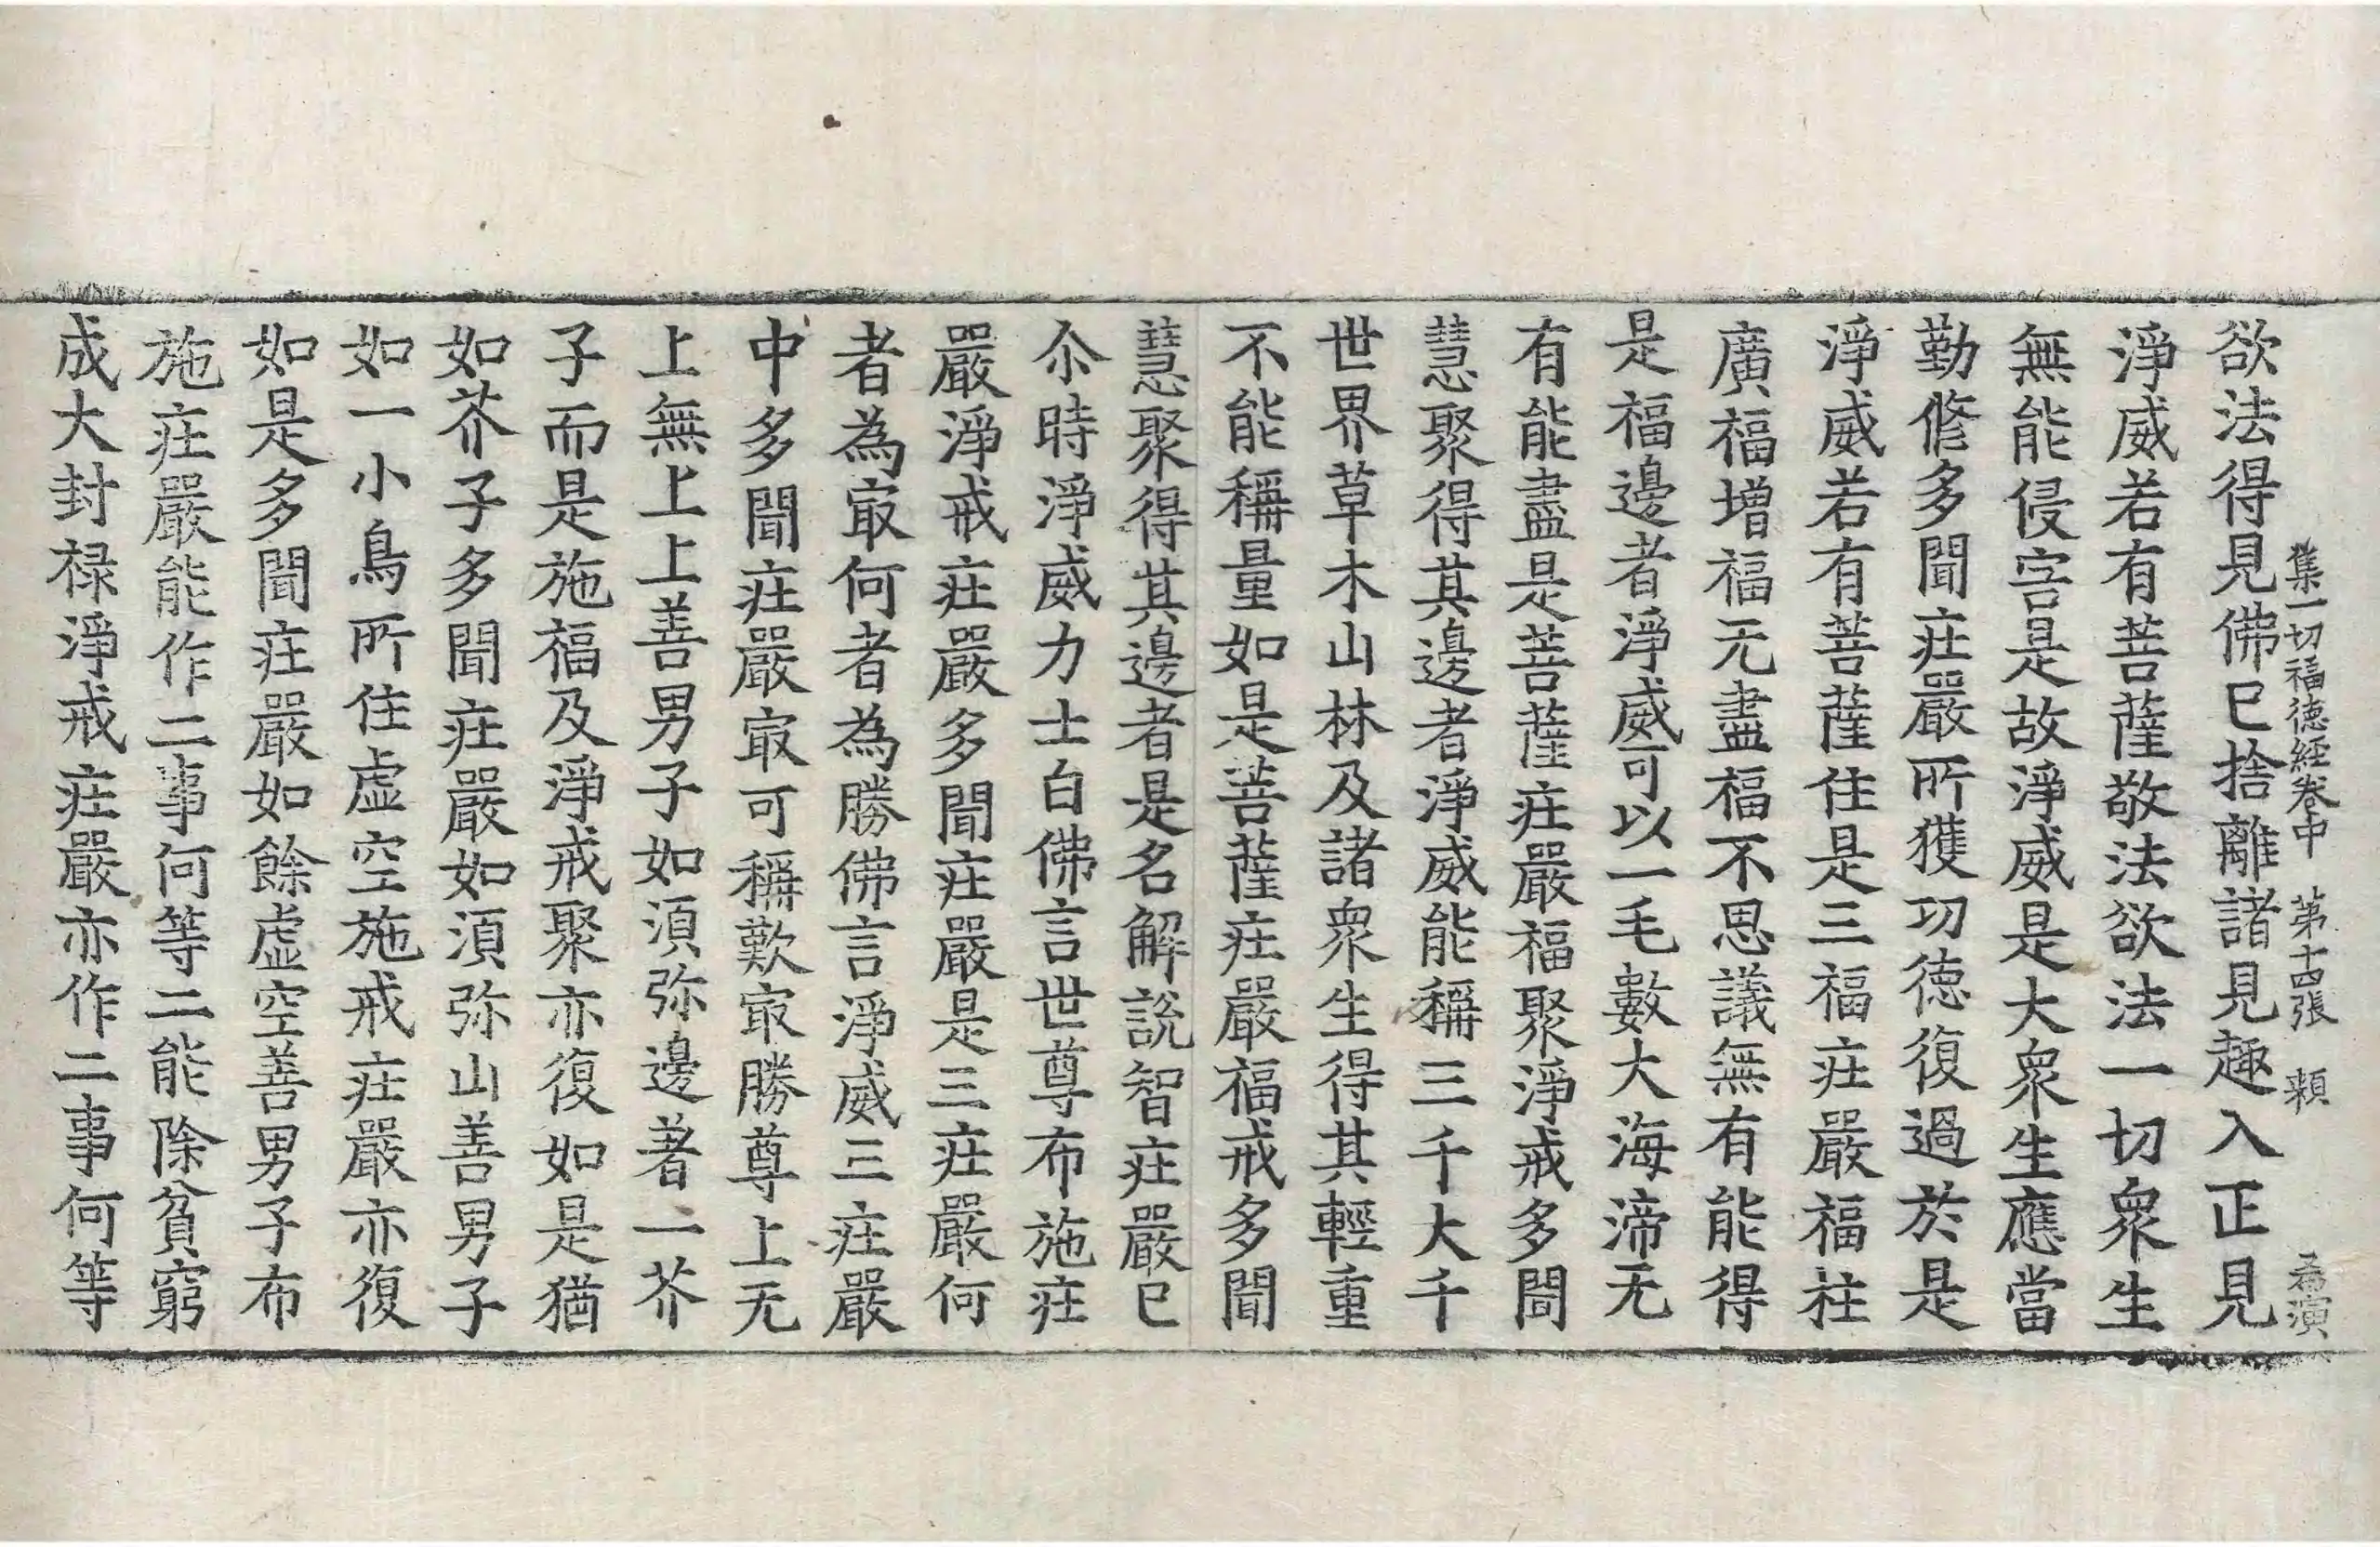 集一切福德經卷中 第十四張 頼
欲法得見佛已捨離諸見趣入正見
淨威若有菩薩敬法欲法一切衆生
無能侵害是故淨威是大衆生應當
勤修多聞莊嚴所獲功德復過於是
淨威若有菩薩住是三福莊嚴福柱
廣福增福无盡福不思議無有能得
是福邊者淨威可以一毛數大海渧无
有能盡是菩薩莊嚴福聚淨戒多聞
慧聚得其邊者淨威能稱三千大千
世界草木山林及諸衆生得其輕重
不能稱量如是菩薩莊嚴福戒多聞
慧聚得其邊者是名解說智莊嚴已
尒時淨威力士白佛言世尊布施莊
嚴淨戒莊嚴多聞莊嚴是三莊嚴何
者為㝡何者為勝佛言淨威三莊嚴
中多聞莊嚴㝡可稱歎㝡勝尊上无
上無上上善男子如湏弥邊著一芥
子而是施福及淨戒聚亦復如是猶
如芥子多聞莊嚴如湏弥山善男子
如一小鳥所住虛空施戒莊嚴亦復
如是多聞莊嚴如餘虛空善男子布
施莊嚴能作二事何等二能除貧窮
成大封禄淨戒莊嚴亦作二事何等